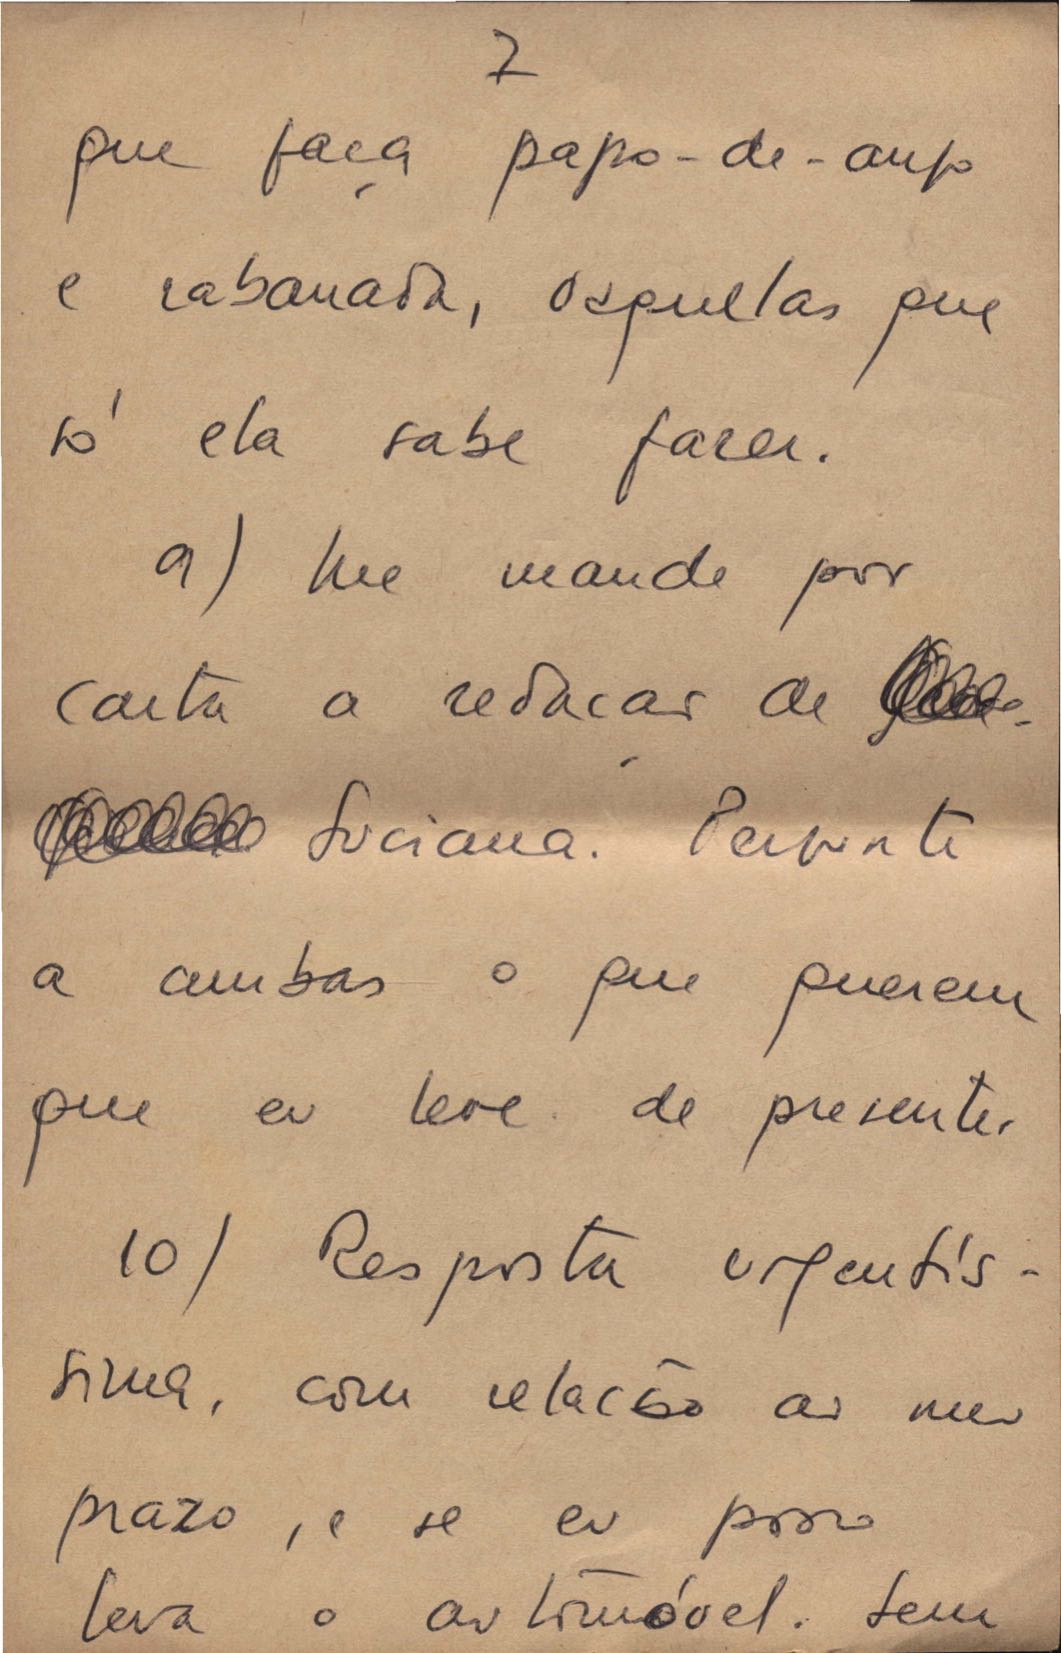 7
que faça papo-de-anjo
e rabanada, daquelas que
só ela sabe fazer.
9) Me mande por
carta a redação de
Luciana. Pergunte
a ambas o que querem
que eu leve de presente.
10) Resposta urgentís-
sima, com relação ao meu
prazo, e se eu posso
levar o automóvel. Sem